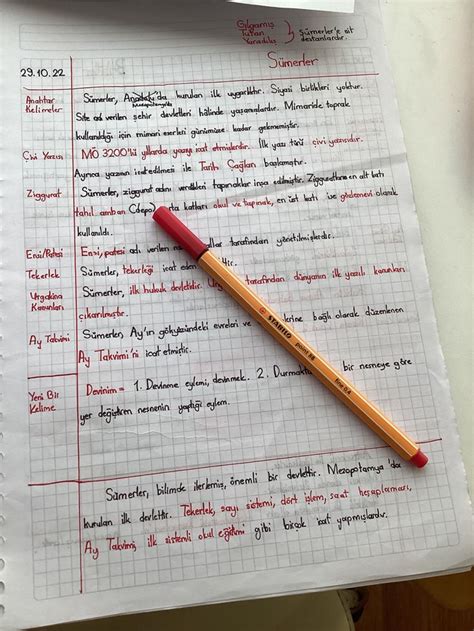 Gılgamış
Tufan
Yaradılış
Sümerler'e ait
destanlardır.
29.10.22
Sümerler
Anahtar
Kelimeler
Sümerler, Anadolu'da kurulan ilk uygarlıktır. Siyasi birlikleri yoktur.
Mezopotamya'da
Site adı verilen şehir devletleri hâlinde yaşamışlardır. Mimaride toprak
kullanıldığı için mimari eserleri günümüze kadar gelememiştir.
Çivi Yazısı
MÖ 3200'lü yıllarda yazıyı icat etmişlerdir. İlk yazı türü çivi yazısıdır.
Ayrıca yazının icat edilmesi ile Tarih Çağları başlamıştır.
Ziggurat
Sümerler, ziggurat adını verdikleri tapınaklar inşa edilmiştir. Zigguratların en alt katı
tahıl ambarı (depo), orta katları okul ve tapınak, en üst katı ise gözlemevi olarak
kullanıldı.
Ensi/Patesi
Ensi, patesi adı verilen tarafından yönetilmişlerdir.
Tekerlek
Sümerler, tekerleği icat
Urgakina
Kanunları
Sümerler, ilk hukuk devletidir. tarafından dünyanın ilk yazılı kanunları
çıkarılmıştır.
Ay Takvimi
Sümerler, Ay'ın gökyüzündeki evreleri ve bağlı olarak düzenlenen
Ay Takvimi'ni icat etmiştir.
Yeni Bir
Kelime
Devinim = 1. Devinme eylemi, devinmek. 2. bir nesneye göre
yer değiştiren nesnenin yaptığı eylem.
STABILO point 88 fine 0,4
Sümerler, bilimde ilerlemiş, önemli bir devlettir. Mezopotamya'da
kurulan ilk devlettir. Tekerlek, sayı sistemi, dört işlem, saat hesaplaması,
Ay Takvimi, ilk sistemli okul eğitimi gibi birçok icat yapmışlardır.